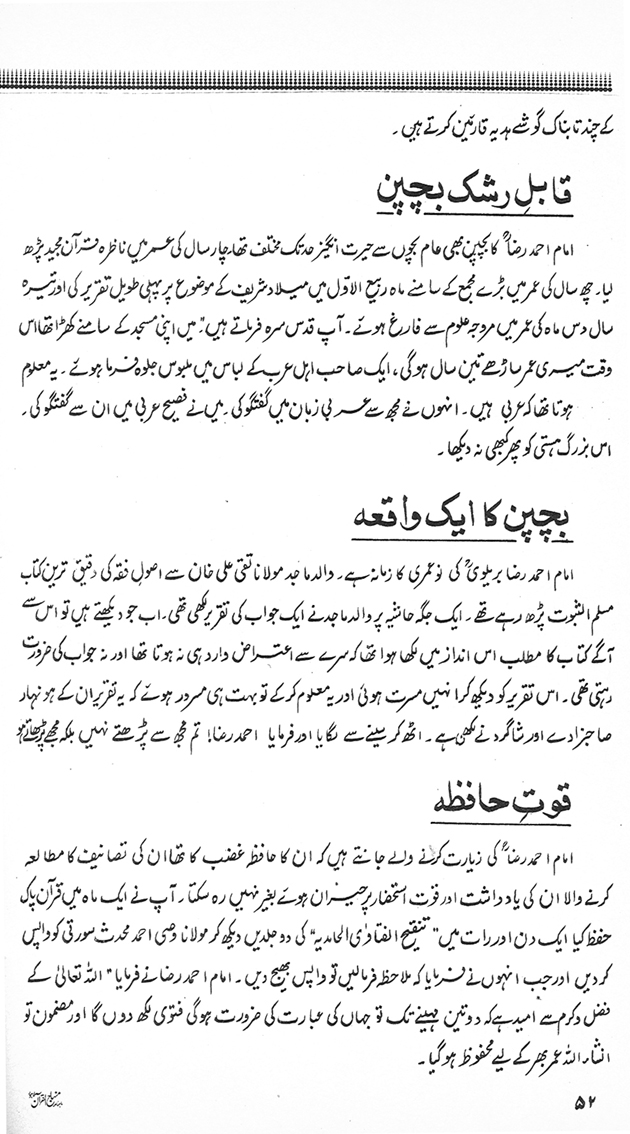 کے چند تابناک گوشے ہدیہ قارئین کرتے ہیں ۔
قابلِ رشک بچپن
امام احمد رضاؒ کا بچپن بھی عام بچوں سے حیرت انگیز حد تک مختلف تھا۔ چار سال کی عمر میں ناظرہ قرآن مجید پڑھ
لیا۔ چھ سال کی عمر میں بڑے مجمع کے سامنے ماہ ربیع الاول میں میلاد شریف کے موضوع پر پہلی طویل تقریر کی اور تیرہ
سال دس ماہ کی عمر میں مروجہ علوم سے فارغ ہوئے۔ آپ قدس سرہ فرماتے ہیں: "میں اپنی مسجد کے سامنے کھڑا تھا اس
وقت میری عمر ساڑھے تین سال ہو گی، ایک صاحب اہل عرب کے لباس میں ملبوس جلوہ فرما ہوئے ۔ یہ معلوم
ہوتا تھا کہ عربی ہیں۔ انہوں نے مجھ سے عربی زبان میں گفتگو کی۔ میں نے فصیح عربی میں ان سے گفتگو کی۔
اس بزرگ ہستی کو پھر کبھی نہ دیکھا ۔
بچپن کا ایک واقعہ
امام احمد رضا بریلویؒ کی نو عمری کا زمانہ ہے۔ والد ماجد مولانا تقی علی خان سے اصولِ فقہ کی دقیق ترین کتاب
مسلم الثبوت پڑھ رہے تھے ۔ ایک جگہ حاشیہ پر والد ماجد نے ایک جواب کی تقریر لکھی تھی۔ اب جو دیکھتے ہیں تو اس سے
آگے کتاب کا مطلب اس انداز میں لکھا ہوا تھا کہ سرے سے اعتراض وارد ہی نہ ہوتا تھا اور نہ جواب کی ضرورت
رہتی تھی۔ اس تقریر کو دیکھ کر انہیں مسرت ہوئی اور یہ معلوم کر کے تو بہت ہی مسرور ہوئے کہ یہ تقریر ان کے ہونہار
صاحبزادے اور شاگرد نے لکھی ہے۔ اٹھ کر سینے سے لگایا اور فرمایا احمد رضا! تم مجھ سے پڑھتے نہیں بلکہ مجھے پڑھاتے ہو
قوتِ حافظہ
امام احمد رضاؒ کی زیارت کرنے والے جانتے ہیں کہ ان کا حافظہ غضب کا تھا ان کی تصانیف کا مطالعہ
کرنے والا ان کی یاد داشت اور قوت استحضار پر حیران ہوئے بغیر نہیں رہ سکتا ۔ آپ نے ایک ماہ میں قرآن پاک
حفظ کیا ایک دن اور رات میں "تنقیح الفتاویٰ الحامدیہ" کی دو جلدیں دیکھ کر مولانا وصی احمد محدث سورتی کو واپس
کر دیں اور جب انہوں نے فرمایا کہ ملاحظہ فرمالیں تو واپس بھیج دیں ۔ امام احمد رضا نے فرمایا "اللہ تعالیٰ کے
فضل و کرم سے امید ہے کہ دو تین مہینے تک تو جہاں کی عبارت کی ضرورت ہو گی فتویٰ لکھ دوں گا اور مضمون تو
انشاء اللہ عمر بھر کے لیے محفوظ ہو گیا۔
۵۲
منہاج القرآن